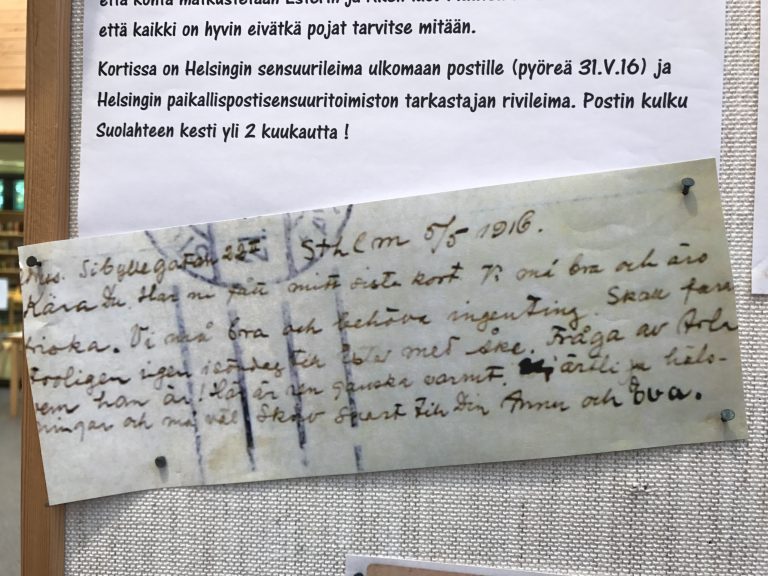 että kaikki on hyvin eivätkä pojat tarvitse mitään.
Kortissa on Helsingin sensuurileima ulkomaan postille (pyöreä 31.V.16) ja
Helsingin paikallispostisensuuritoimiston tarkastajan rivileima. Postin kulku
Suolahteen kesti yli 2 kuukautta !
Sthlm 5/5 1916.
Kära Du. Har ni fått mitt sista kort Vi må bra och äro
friska. Vi må bra och behöva ingenting. Skall fara
troligen igen söndag till med Åke. Fråga av
vem han är! Här är ren ganska varmt. hjärtliga häls-
ningar och må väl Skriv snart till Din Anna och Eva.